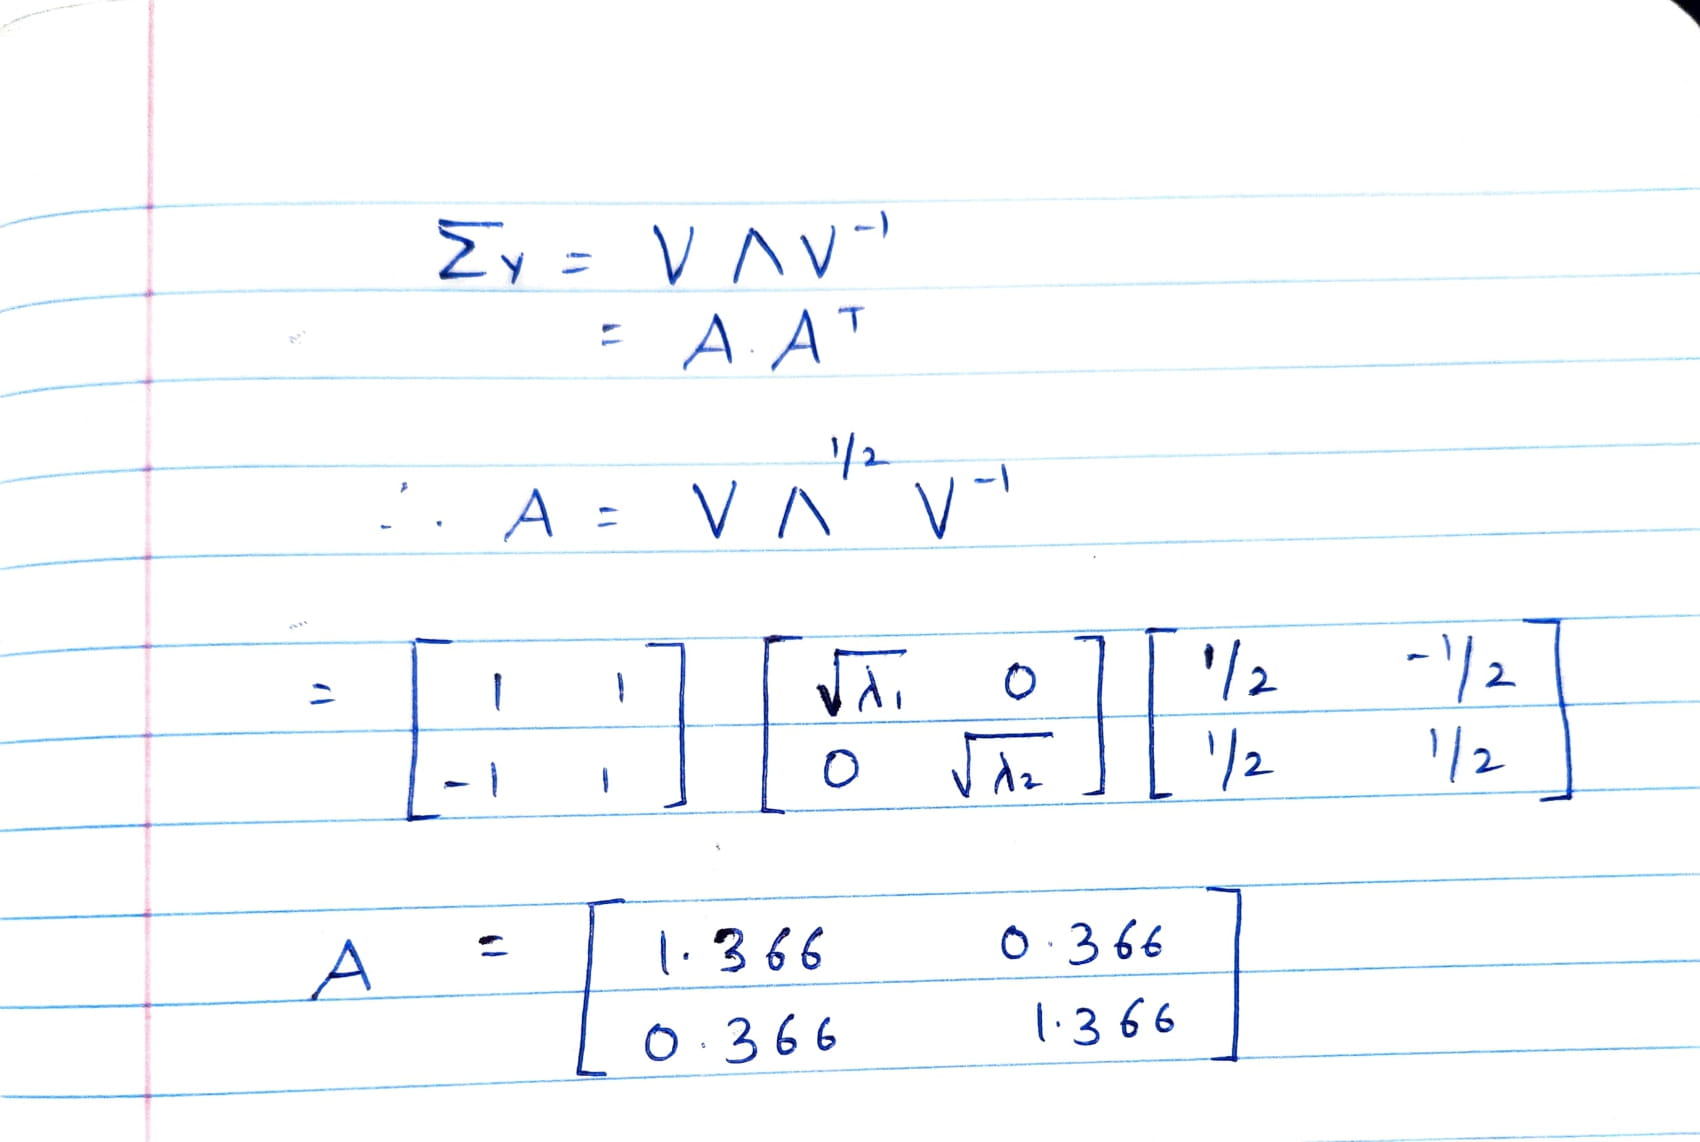 Σy = V Λ V⁻¹
= A . Aᵀ
∴ A = V Λ^1/2 V⁻¹
= [ 1 1 ; -1 1 ] [ √λ₁ 0 ; 0 √λ₂ ] [ 1/2 -1/2 ; 1/2 1/2 ]
A = [ 1.366 0.366 ; 0.366 1.366 ]